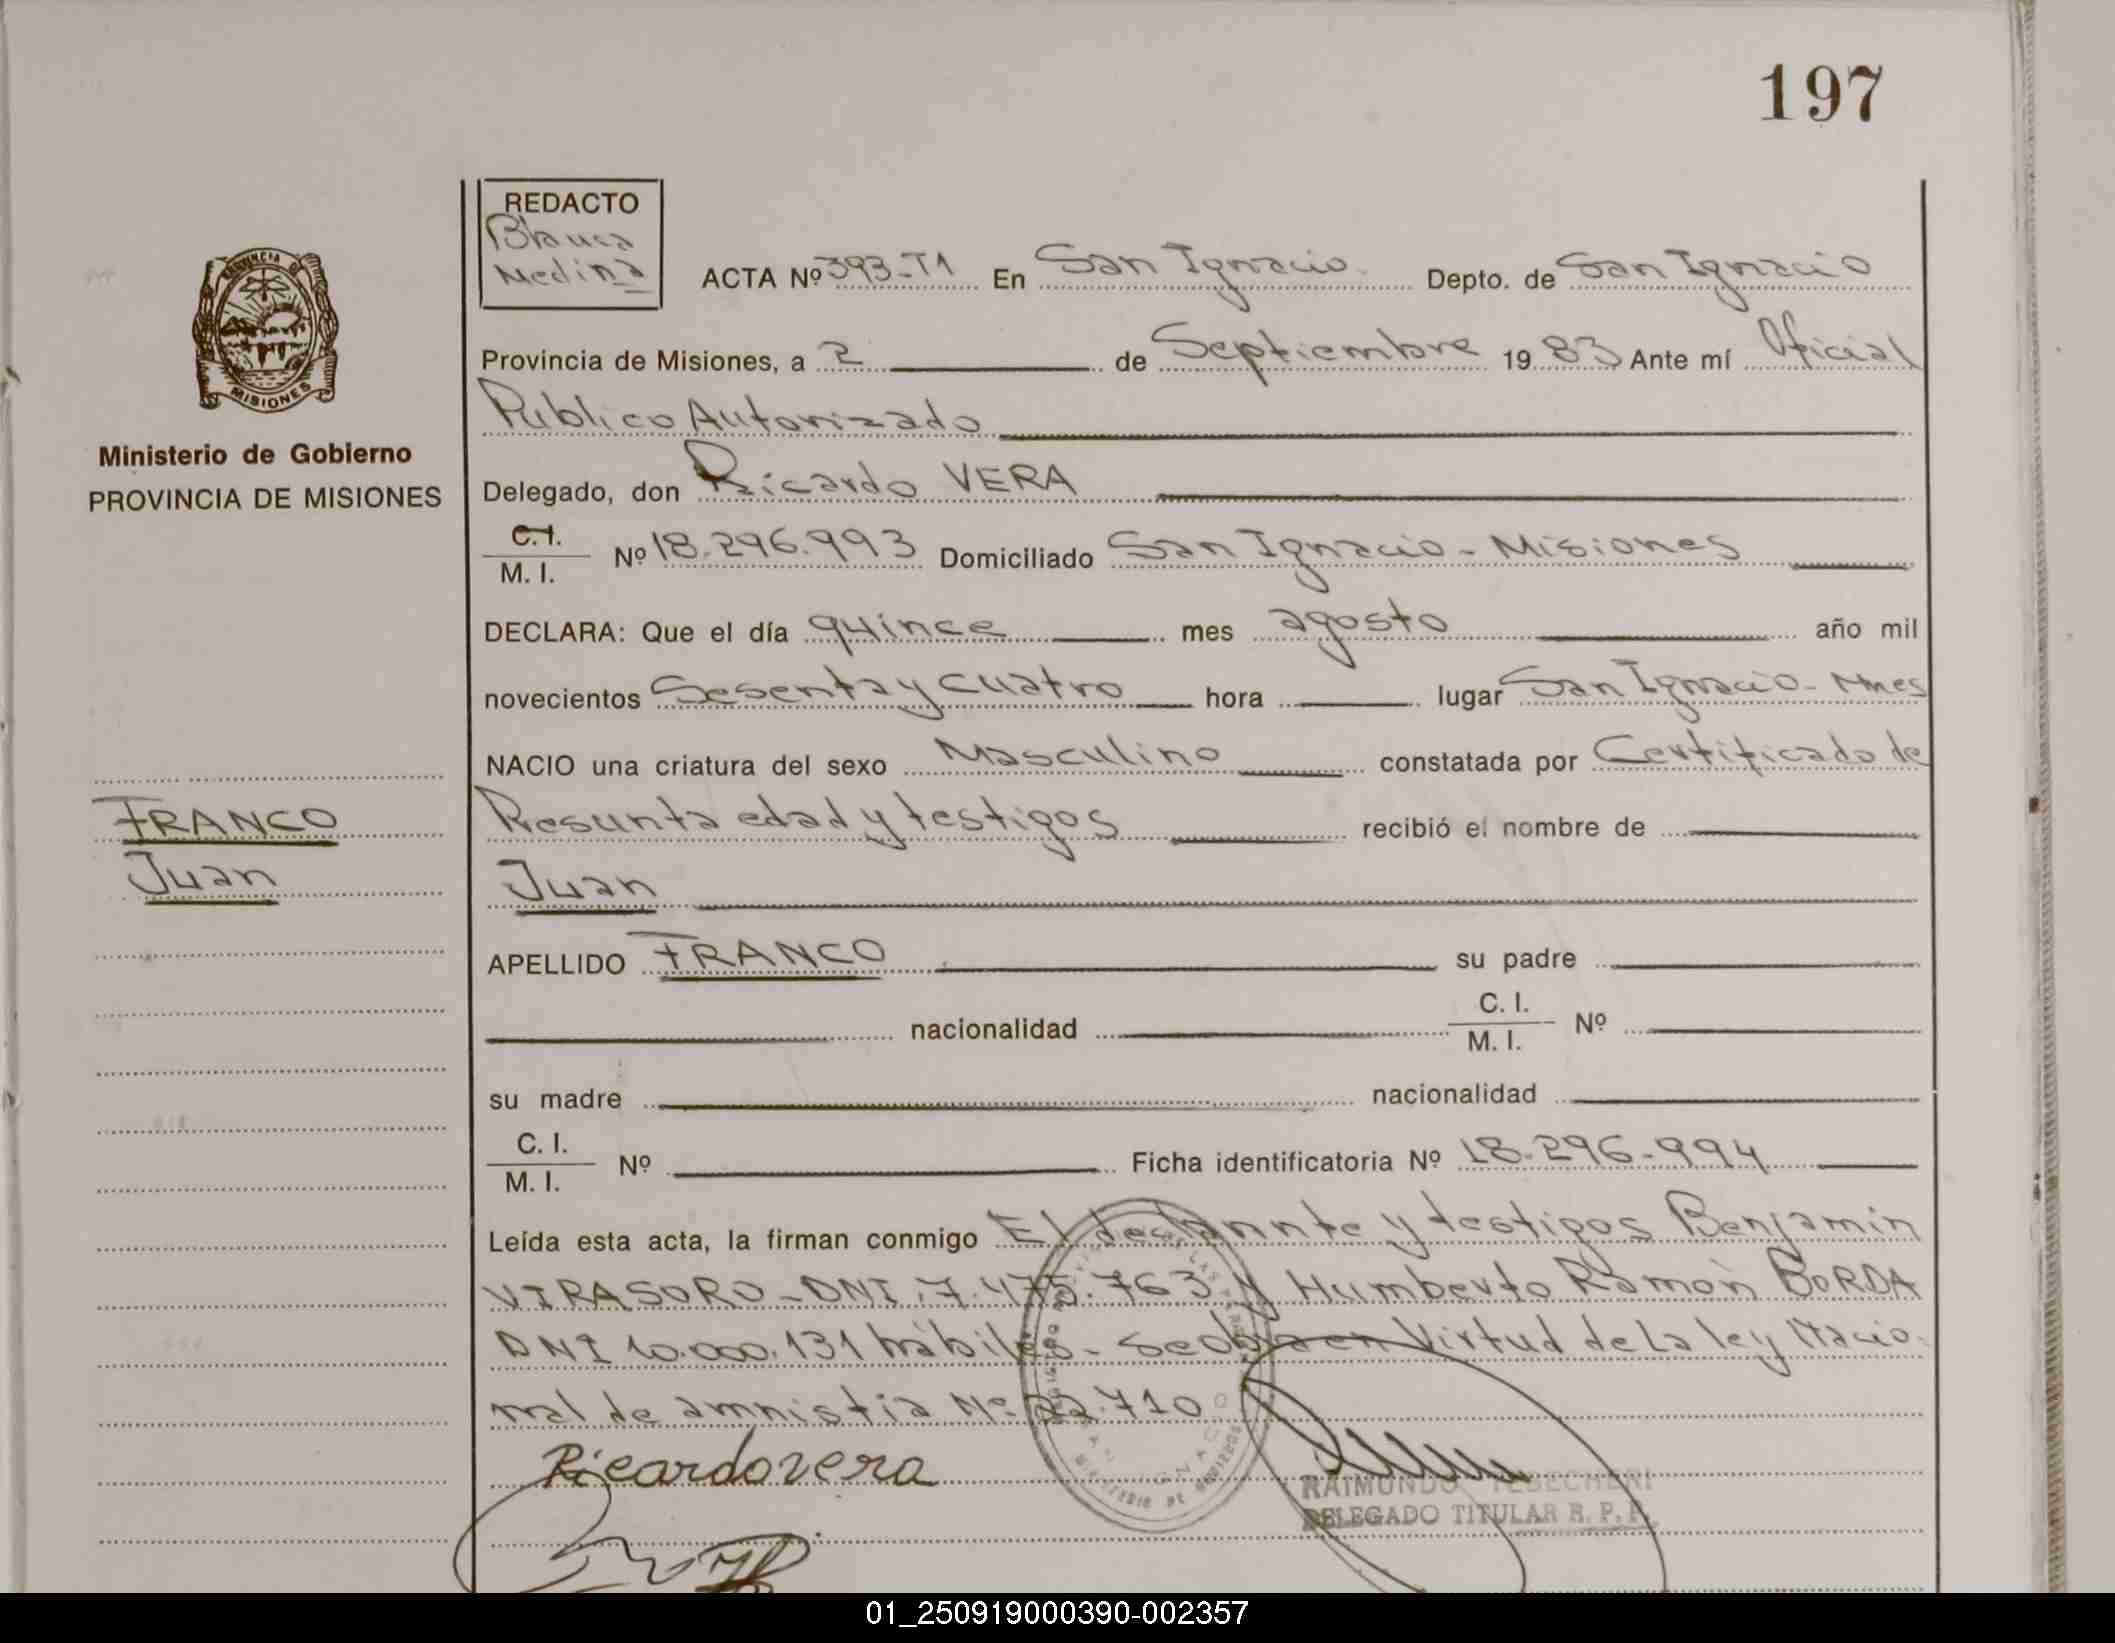 197
REDACTO
Blanca
Medina
ACTA Nº 393-T1 En San Ignacio Depto. de San Ignacio
Provincia de Misiones, a 2 de Septiembre 1983 Ante mí Oficial
Público Autorizado
Delegado, don Ricardo VERA
C.I.
M. I. Nº 18.296.993 Domiciliado San Ignacio - Misiones
DECLARA: Que el día quince mes agosto año mil
novecientos Sesenta y cuatro hora lugar San Ignacio - Mnes
NACIO una criatura del sexo Masculino constatada por Certificado de
Presunta edad y testigos recibió el nombre de
Juan
APELLIDO FRANCO su padre
nacionalidad C. I.
M. I. Nº
su madre nacionalidad
C. I.
M. I. Nº Ficha identificatoria Nº 18.296.994
Leída esta acta, la firman conmigo El declarante y testigos Benjamin
VIRASORO - DNI. 7.475.763 y Humberto Ramón BORDA
DNI 10.000.131 hábiles - Se obra en Virtud de La ley Nacio-
nal de amnistia Nº 22.710
Ricardo vera
RAIMUNDO TEBECHERI
DELEGADO TITULAR R. P. P.
PROVINCIA DE
MISIONES
Ministerio de Gobierno
PROVINCIA DE MISIONES
FRANCO
Juan
01_250919000390-002357